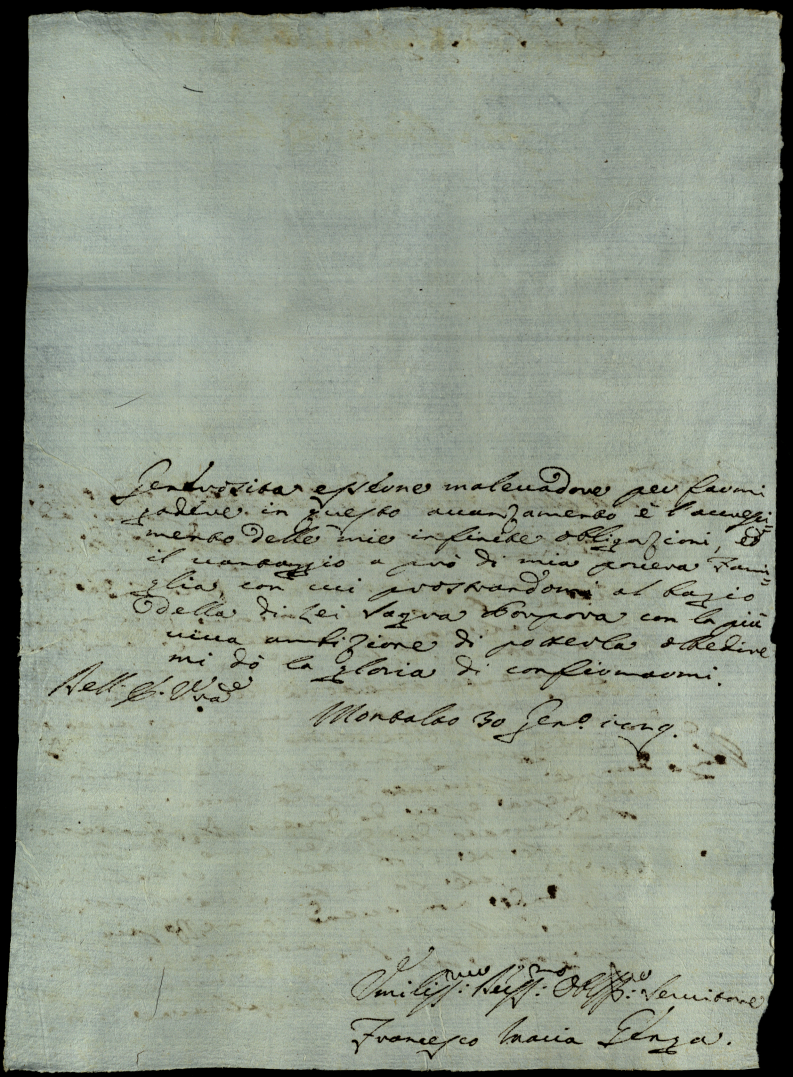 Generosità essere mallevadore per farmi
godere in questo avanzamento è l'accresci-
mento delle mie infinite obligazioni, ed
il vantaggio a prò di mia povera Fami-
glia, con cui prostrandomi al bagio
della di Lei Sagra Porpora con la più
viva ambizione di poterla obedire
mi dò la gloria di confirmarmi.
Dell' E. Vra
Montalto 30 Gen.o
Umiliss.mo Obblig.mo Servitore
Francesco Maria